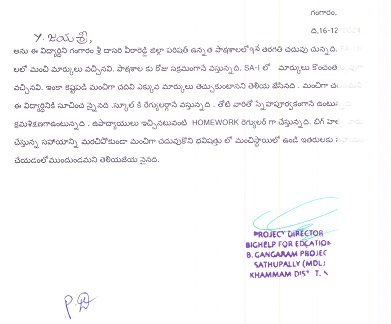 గంగారం,
ది,16-12
Y. జయశ్రీ,
అను ఈ విద్యార్థిని గంగారం శ్రీ దాసరి వీరారెడ్డి జిల్లా పరిషత్ ఉన్నత పాఠశాలలో తరగతి చదువు చున్నది.
లలో మంచి మార్కులు వచ్చినవి. పాఠశాల కు రోజు సక్రమంగానే వస్తున్నది. SA-I లో మార్కులు
వచ్చినవి. ఇంకా కష్టపడి మంచిగా చదివి ఎక్కువ మార్కులు తెచ్చుకుంటానని తెలియ జేసినది. మంచిగా
ఈ విద్యార్థినికి సూచించ నైనది. స్కూల్ కి రెగ్యులర్గానే వస్తున్నది. తోటి వారితో స్నేహపూర్వకంగానే
క్రమశిక్షణగాఉంటున్నది. ఉపాధ్యాయులు ఇచ్చినటువంటి HOMEWORK రెగ్యులర్ గా చేస్తున్నది. బిగ్
చేస్తున్న సహాయాన్ని మరచిపోకుండా మంచిగా చదువుకొని భవిష్యత్తు లో మంచిస్థాయిలో ఉండి ఇతరులకు
చేయడంలోముందుండమని తెలియజేయ నైనది.
PROJECT DIRECTOR
BIGHELP FOR EDCATION
B. GANGARAM PROJEC
SATHUPALLY (MDL)
KHAMMAM DIST